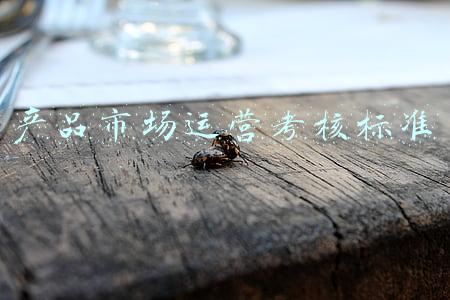 产品市场运营考核标准